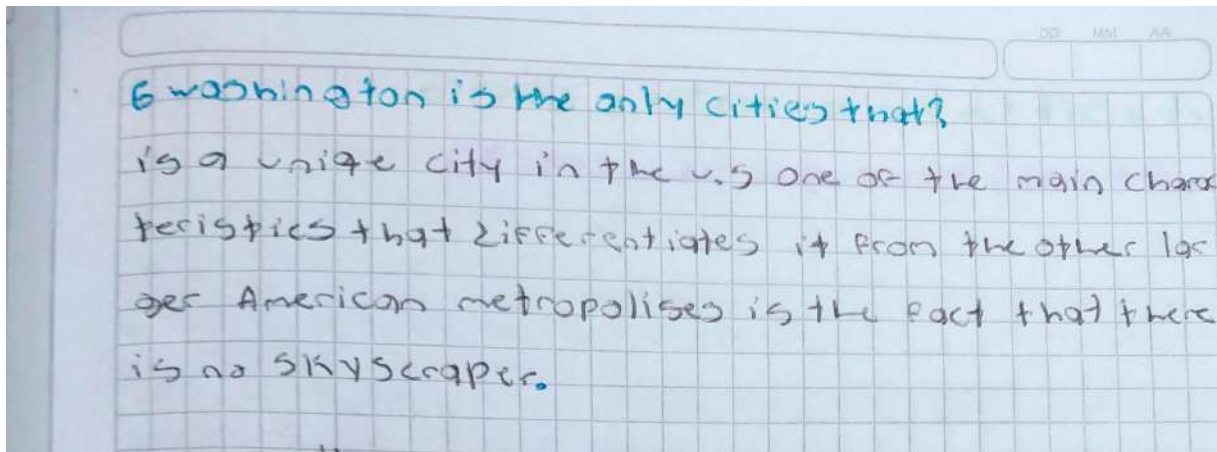 DD MM AA
6 washington is the only cities that?
is a uniqe city in the u.s one of the main charac
teristics that differentiates it from the other lar
ger American metropolises is the fact that there
is no skyscraper.